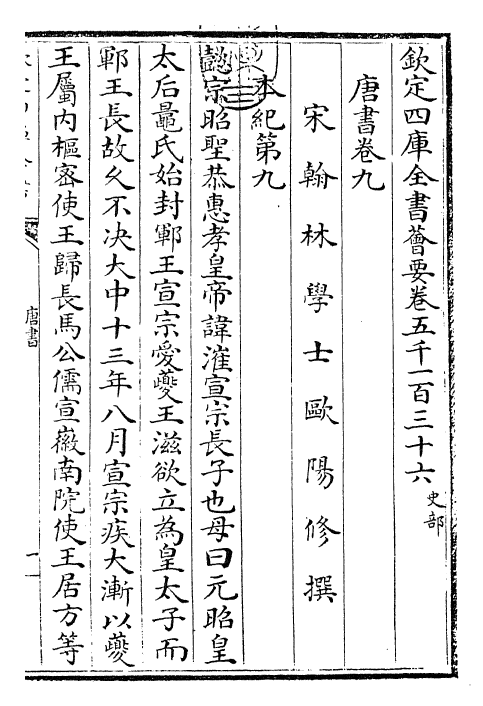 欽定四庫全書薈要卷五千一百三十六
史部
唐書卷九
宋翰林學士歐陽修撰
本紀第九
懿宗昭聖恭惠孝皇帝諱漼宣宗長子也母曰元昭皇
太后鼂氏始封鄆王宣宗愛夔王滋欲立為皇太子而
鄆王長故久不決大中十三年八月宣宗疾大漸以夔
王屬内樞密使王歸長馬公儒宣徽南院使王居方等
唐書
一